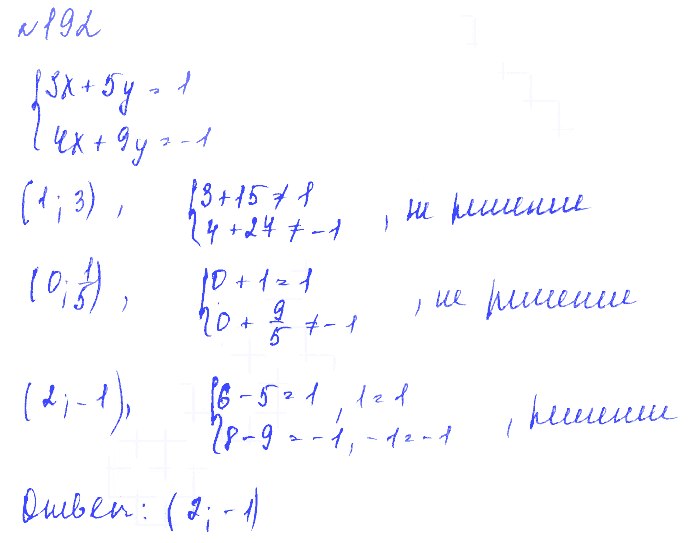 №192
{3x + 5y = 1
{4x + 9y = -1
(1; 3), {3 + 15 ≠ 1
{4 + 27 ≠ -1 , не решение
(0; 1/5), {0 + 1 = 1
{0 + 9/5 ≠ -1 , не решение
(2; -1), {6 - 5 = 1, 1 = 1
{8 - 9 = -1, -1 = -1 , решение
Ответ: (2; -1)